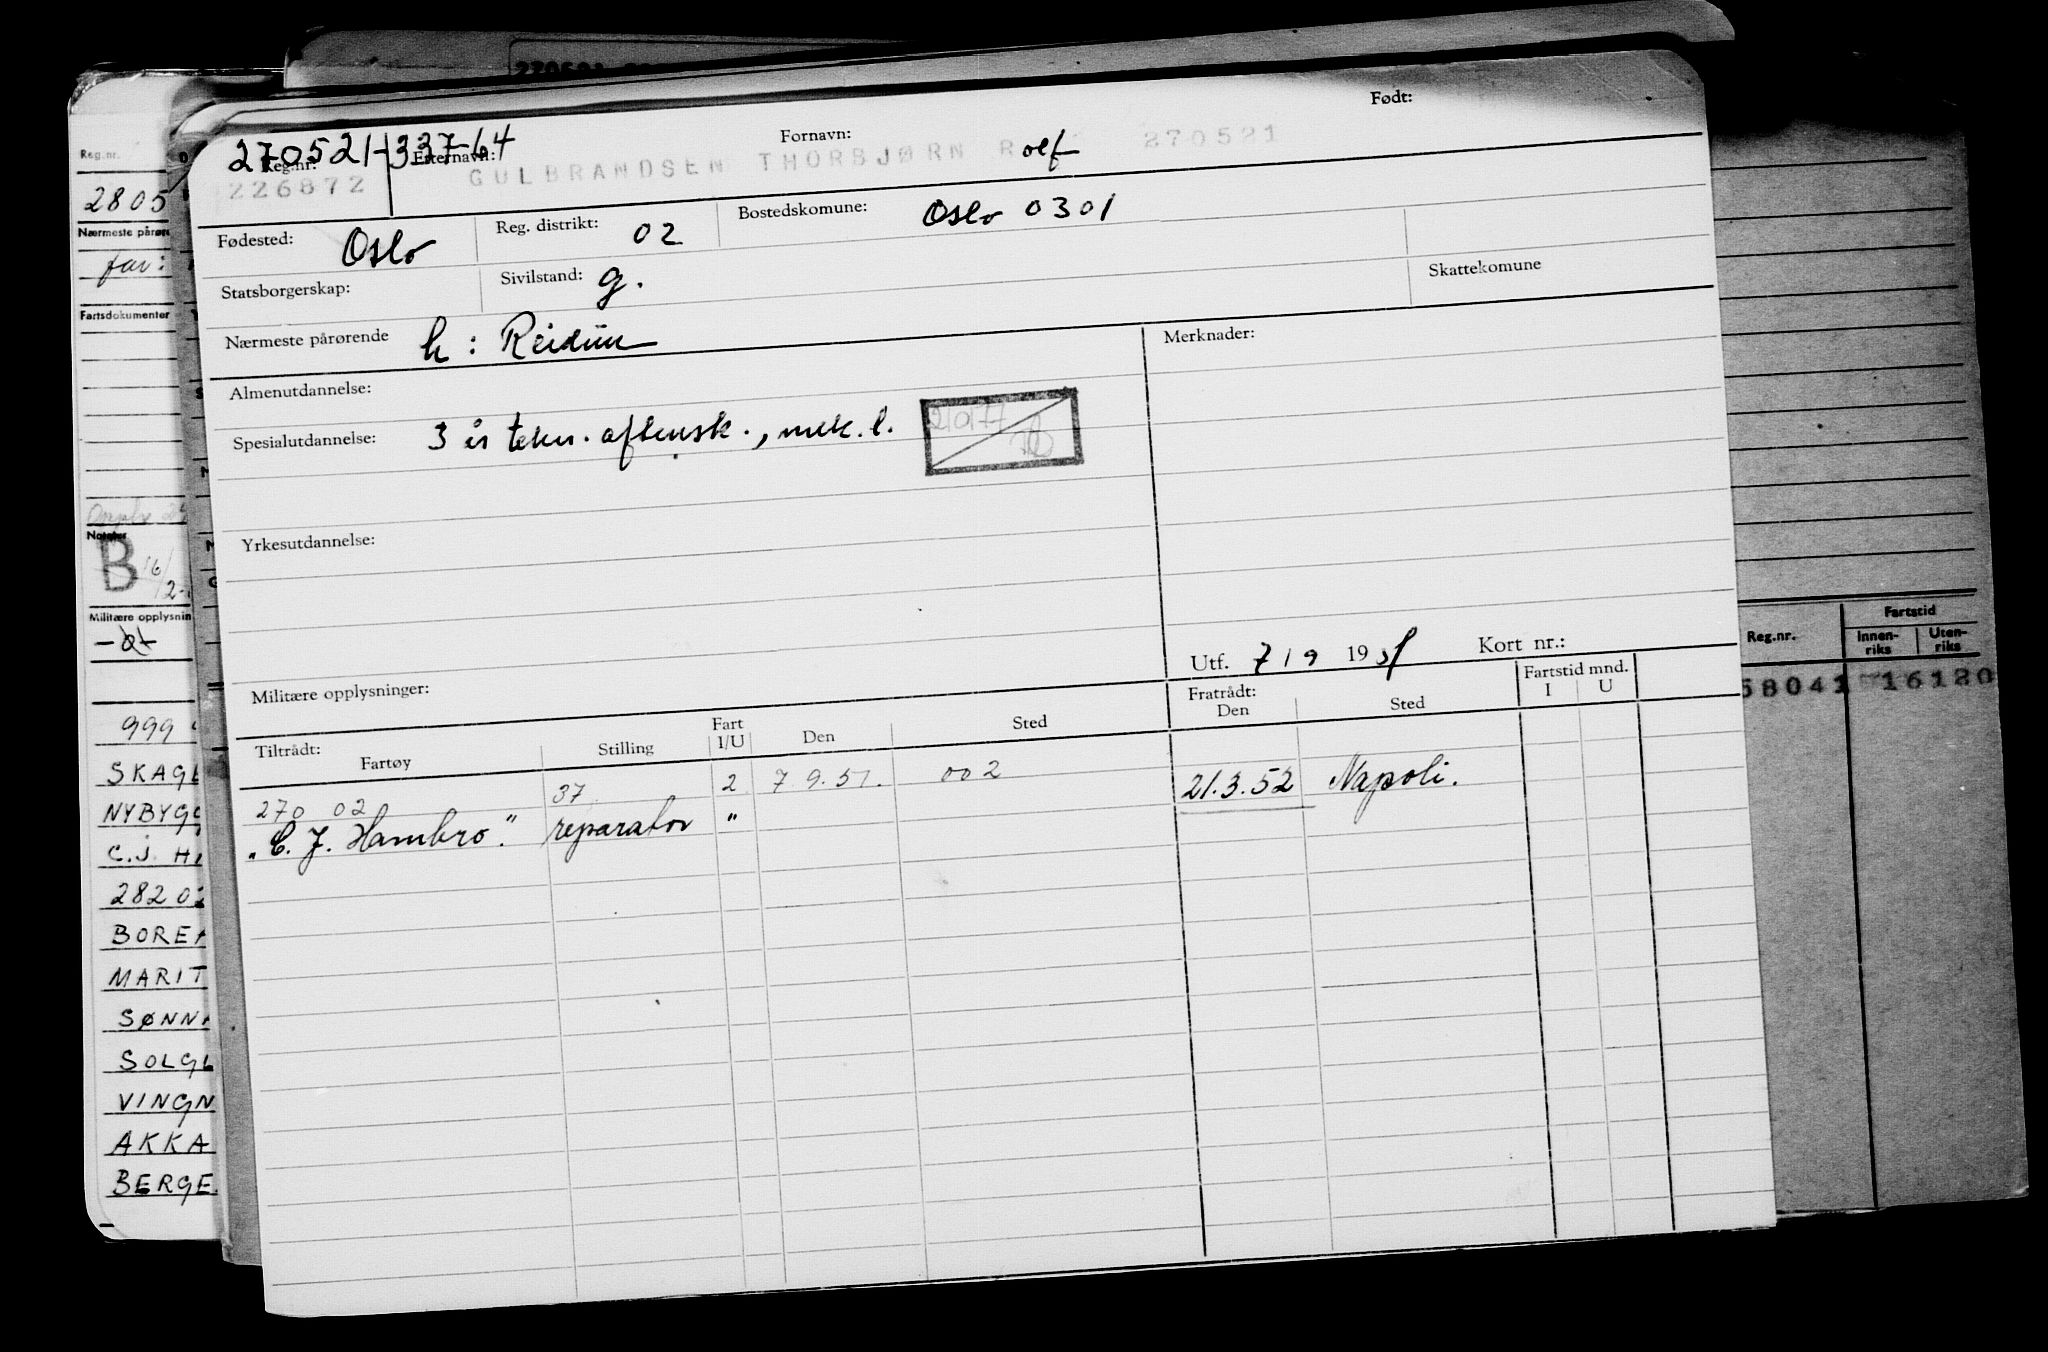 270521-33764
Reg.nr:
226872
Etternavn:
Fornavn:
Født:
GULBRANDSEN THORBJØRN R olf 270521
Fødested: Oslo
Reg. distrikt: 02
Bostedskomune: Oslo 0301
Statsborgerskap:
Sivilstand: g.
Skattekomune
Nærmeste pårørende h: Reidun
Merknader:
Almenutdannelse:
Spesialutdannelse: 3 år tekn. aftensk., mek. l.
Yrkesutdannelse:
Utf. 7 / 9 1951
Kort nr.:
Militære opplysninger:
Tiltrådt:
Fartøy
Stilling
Fart I/U
Den
Sted
Fratrådt:
Den
Sted
Fartstid mnd.
I U
270 02 37 2 7 9. 51. 002 21.3.52 Napoli.
"C. J. Hambro". reparatør "
Reg.nr.
2805
Nærmeste pårør
far:
Fartsdokumenter
Notater
B 16/2-
Militære opplysnin
999
SKAGE
NYBYGG
C.J. HA
28202
BOREA
MARIT
SØNNA
SOLGL
VINGN
AKKA
BERGE
Reg.nr.
Fartstid
Innen-riks
Uten-riks
58041 16120